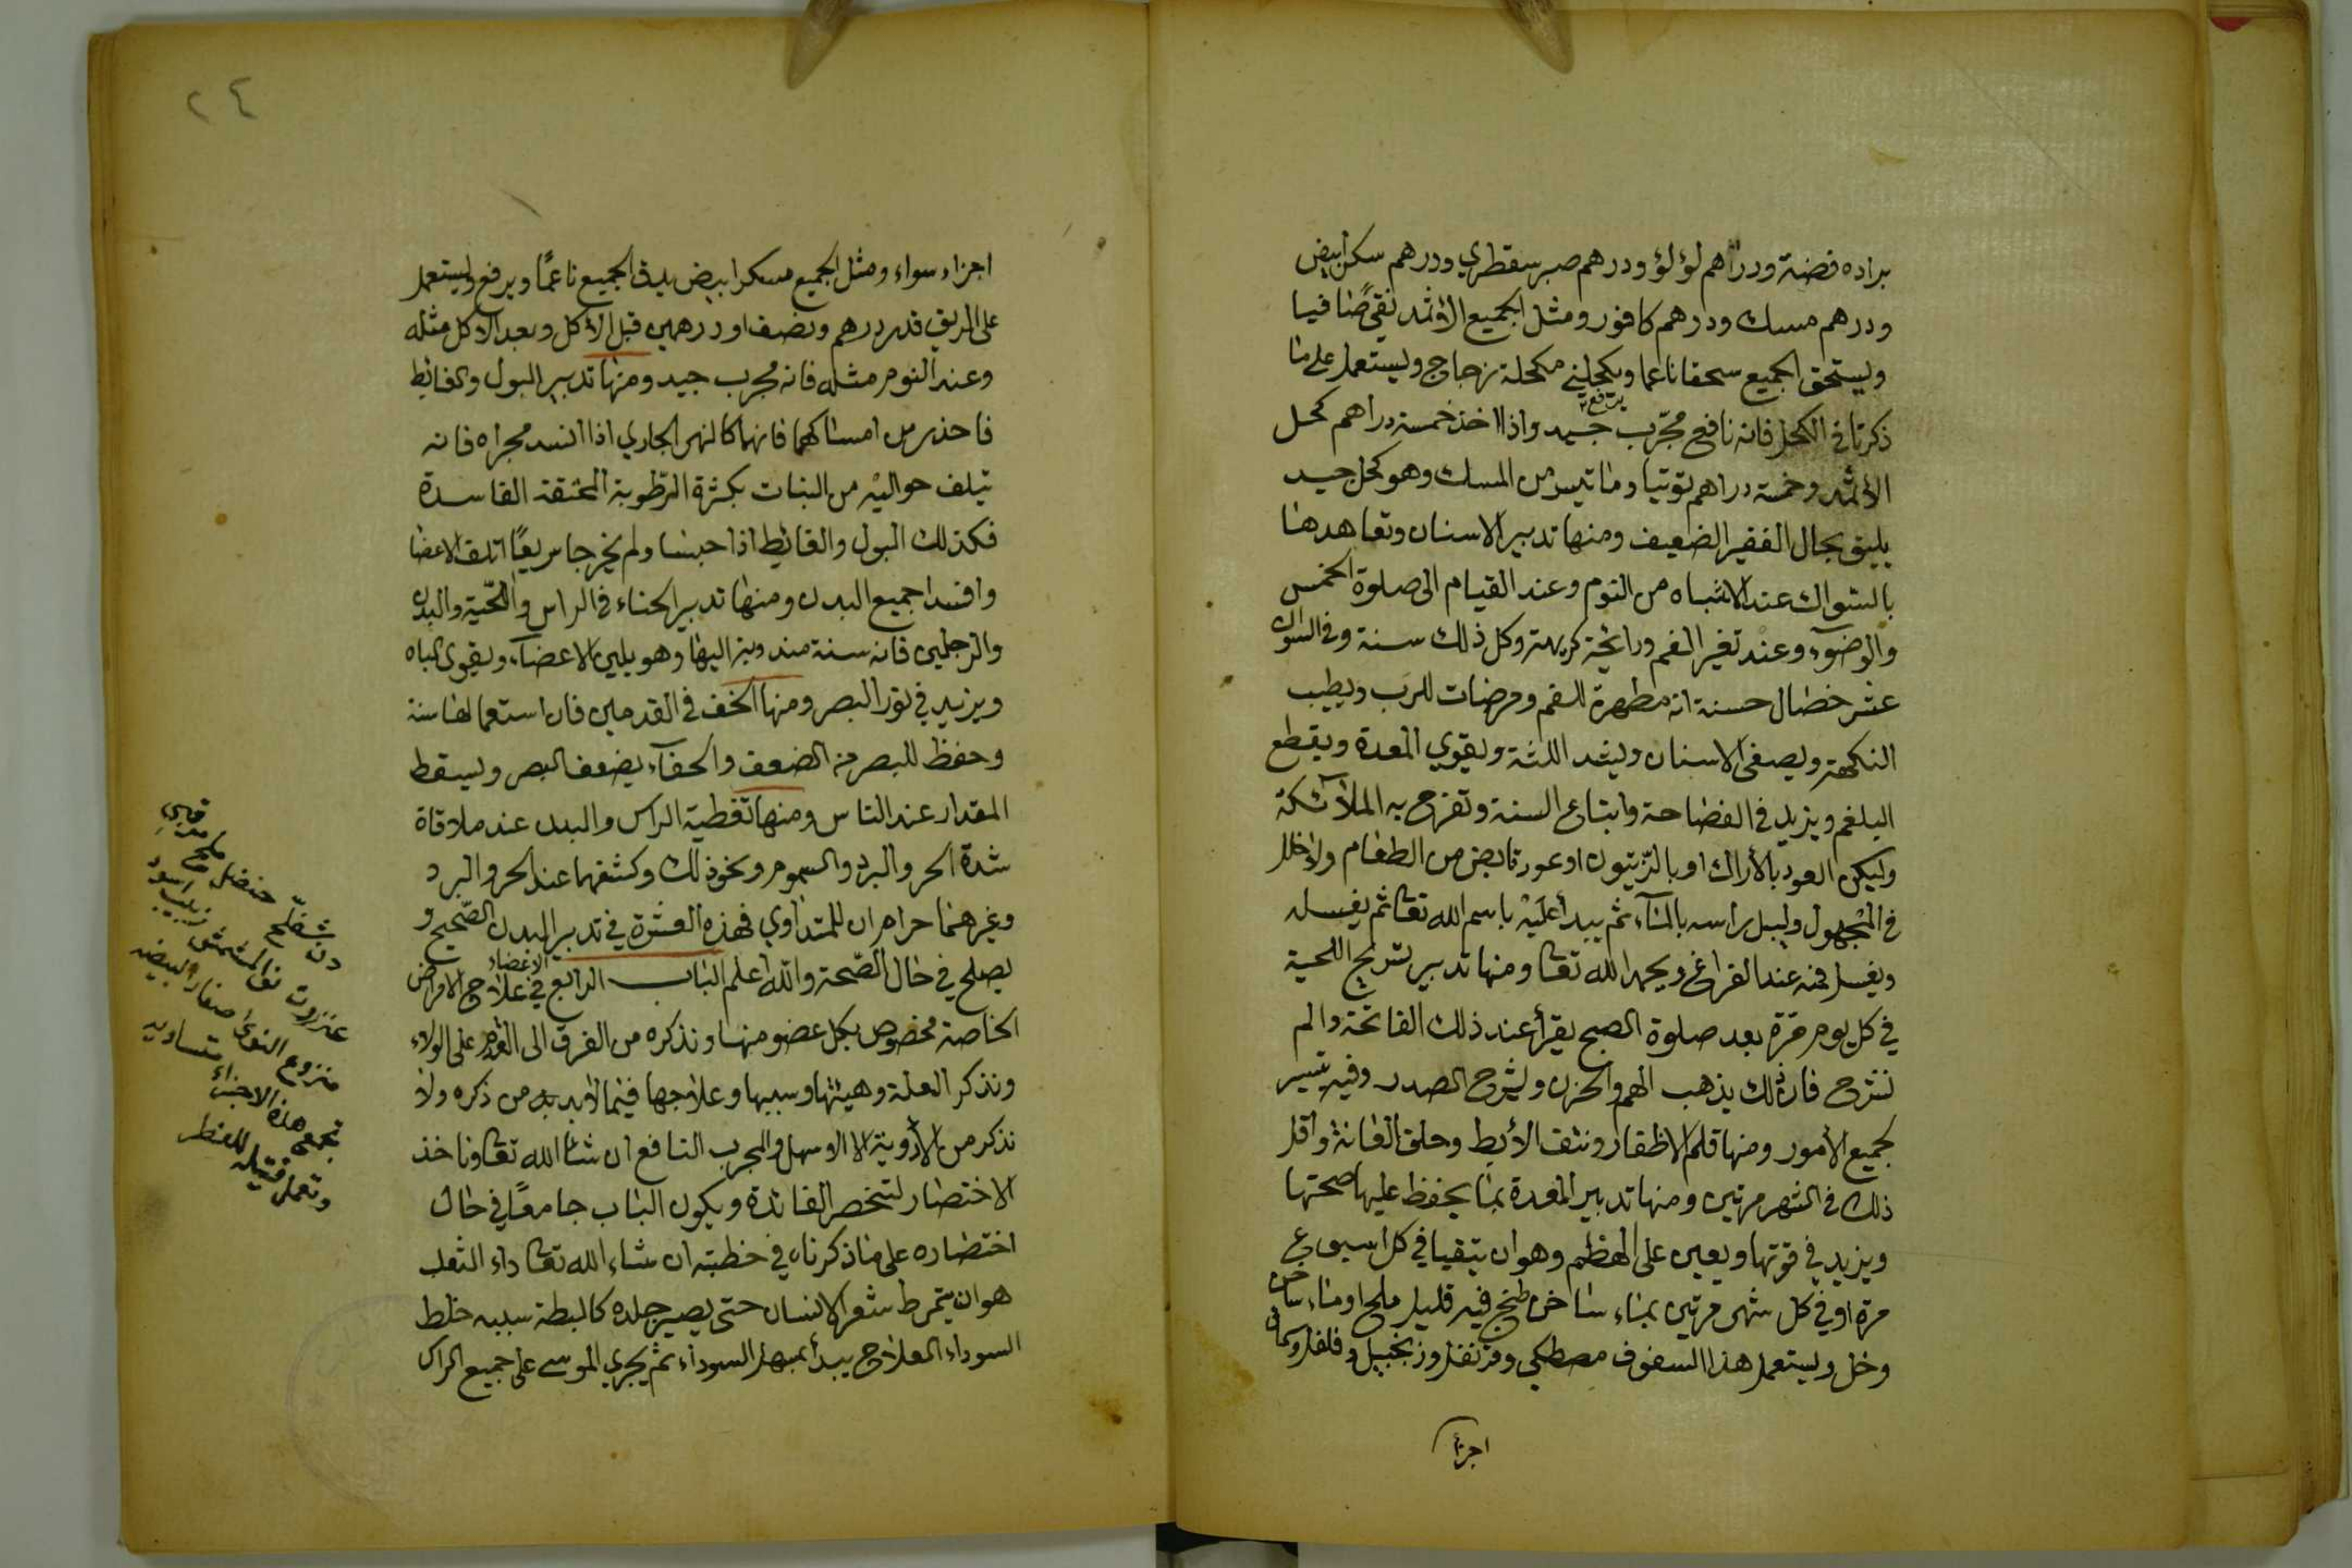 براده فضة ودراهم لؤلؤ ودرهم صبر سقطري ودرهم سكر ابيض
ودرهم مسك ودرهم كافور ومثل الجميع الاثمد نقى صافيا
ويستحق الجميع سحقا ناعما ويكحل في مكحلة زجاج ويستعمل على ما
يرفع
ذكرنا في الكحل فانه نافع مجرب جيد واذا اخذ خمسة دراهم كحل
الاثمد وخمسة دراهم توتيا وما تيسر من المسك وهو كحل جيد
يليق بحال الفقير الضعيف ومنها تدبير الاسنان وتعاهدها
بالسواك عند الانتباه من النوم وعند القيام الى صلوة الخمس
والوضوء وعند تغير الفم ورائحة كريهة وكل ذلك سنة وفي السواك
عشر خصال حسنة انه مطهرة للفم ومرضات للرب ويطيب
النكهة ويصفى الاسنان ويشد اللثة ويقوي المعدة ويقطع
البلغم ويزيد في الفصاحة واتباع السنة وتفرح به الملآئكة
وليكن العود بالأراك او بالزيتون او عود قابض من الطعام ولاخلل
في المجهول وليبل راسه بالمآء ثم يبدأ عليه باسم الله تعا ثم يغسله
ويغسل فمه عند الفراغ ويحمد الله تعا ومنها تدبير تسريح اللحية
في كل يوم مرة بعد صلوة الصبح يقرأ عند ذلك الفاتحة والم
نشرح فان ذلك يذهب الهم والحزن ويشرح الصدر وفيه تيسير
لجميع الأمور ومنها قلم الاظفار ونتف الأبط وحلق العانة واقل
ذلك في الشهر مرتين ومنها تدبير المعدة بما يحفظ عليها صحتها
ويزيد في قوتها ويعين على الهظم وهو ان يتقيا في كل اسبوع
مرة او في كل شهر مرتين بماء ساخن طبخ فيه قليل ملح او ماء ساخن
وخل ويستعمل هذا السفوف مصطكى وقرنفل وزنجبيل وفلفل وكمون
اجزاء
٢٤
اجزاء سواء ومثل الجميع سكر ابيض يدق الجميع ناعمًا ويرفع ويستعمل
على الريق قدر درهم ونصف او درهمين قبل الأكل وبعد الاكل مثله
وعند النوم مثله فانه مجرب جيد ومنها تدبير البول والغائط
فاحذر من امساكهما فانهما كالنهر الجاري اذا انسد مجراه فانه
يتلف حواليه من النبات بكثرة الرطوبة المحتقنة الفاسدة
فكذلك البول والغائط اذا حبسا ولم يخرجا سريعًا اتلف الاعضا
وافسدا جميع البدن ومنها تدبير الحناء في الراس واللحية والبدن
والرجلين فانه سنة مندوبة اليها وهو يلين الاعضآء ويقوى الباه
ويزيد في نور البصر ومنها الخف في القدمين فان استعمالها سنة
وحفظ للبصر من الضعف والحفآء يضعف البصر ويسقط
المقدار عند الناس ومنها تغطية الراس والبدن عند ملاقاة
شدة الحر والبرد والسموم ونحو ذلك وكشفهما عند الحر والبرد
وغيرهما حرام ان للمتداوي فهذه العشرة في تدبير البدن الصحيح و
يصلح في حال الصحة والله اعلم الباب الرابع في علاج الامراض
الاعضاء
الخاصة مخصوص بكل عضو منها ونذكره من الفرق الى القدم على الولاء
ونذكر العلة وهيئتها وسببها وعلاجها فيما لابد به من ذكره ولا
نذكر من الأدوية الا الاسهل والمجرب النافع ان شاء الله تعا وناخذ
الاختصار لتنحصر الفائدة ويكون الباب جامعًا في حال
اختصاره على ما ذكرناه في خطبته ان شاء الله تعا داء الثعلب
هو ان يتمرط شعر الانسان حتى يصير جلده كالبطة سببه خلط
السوداء العلاج يبدأ بمسهل السوداء ثم يجري الموسى على جميع الراس
شفلح حنضل ملح
عنزروت نقا المشمش زبيب اسود
منزوع النوى صفار البيضه
تجمع هذه الاجزاء متساويه
وتعمل فتيله للفطر